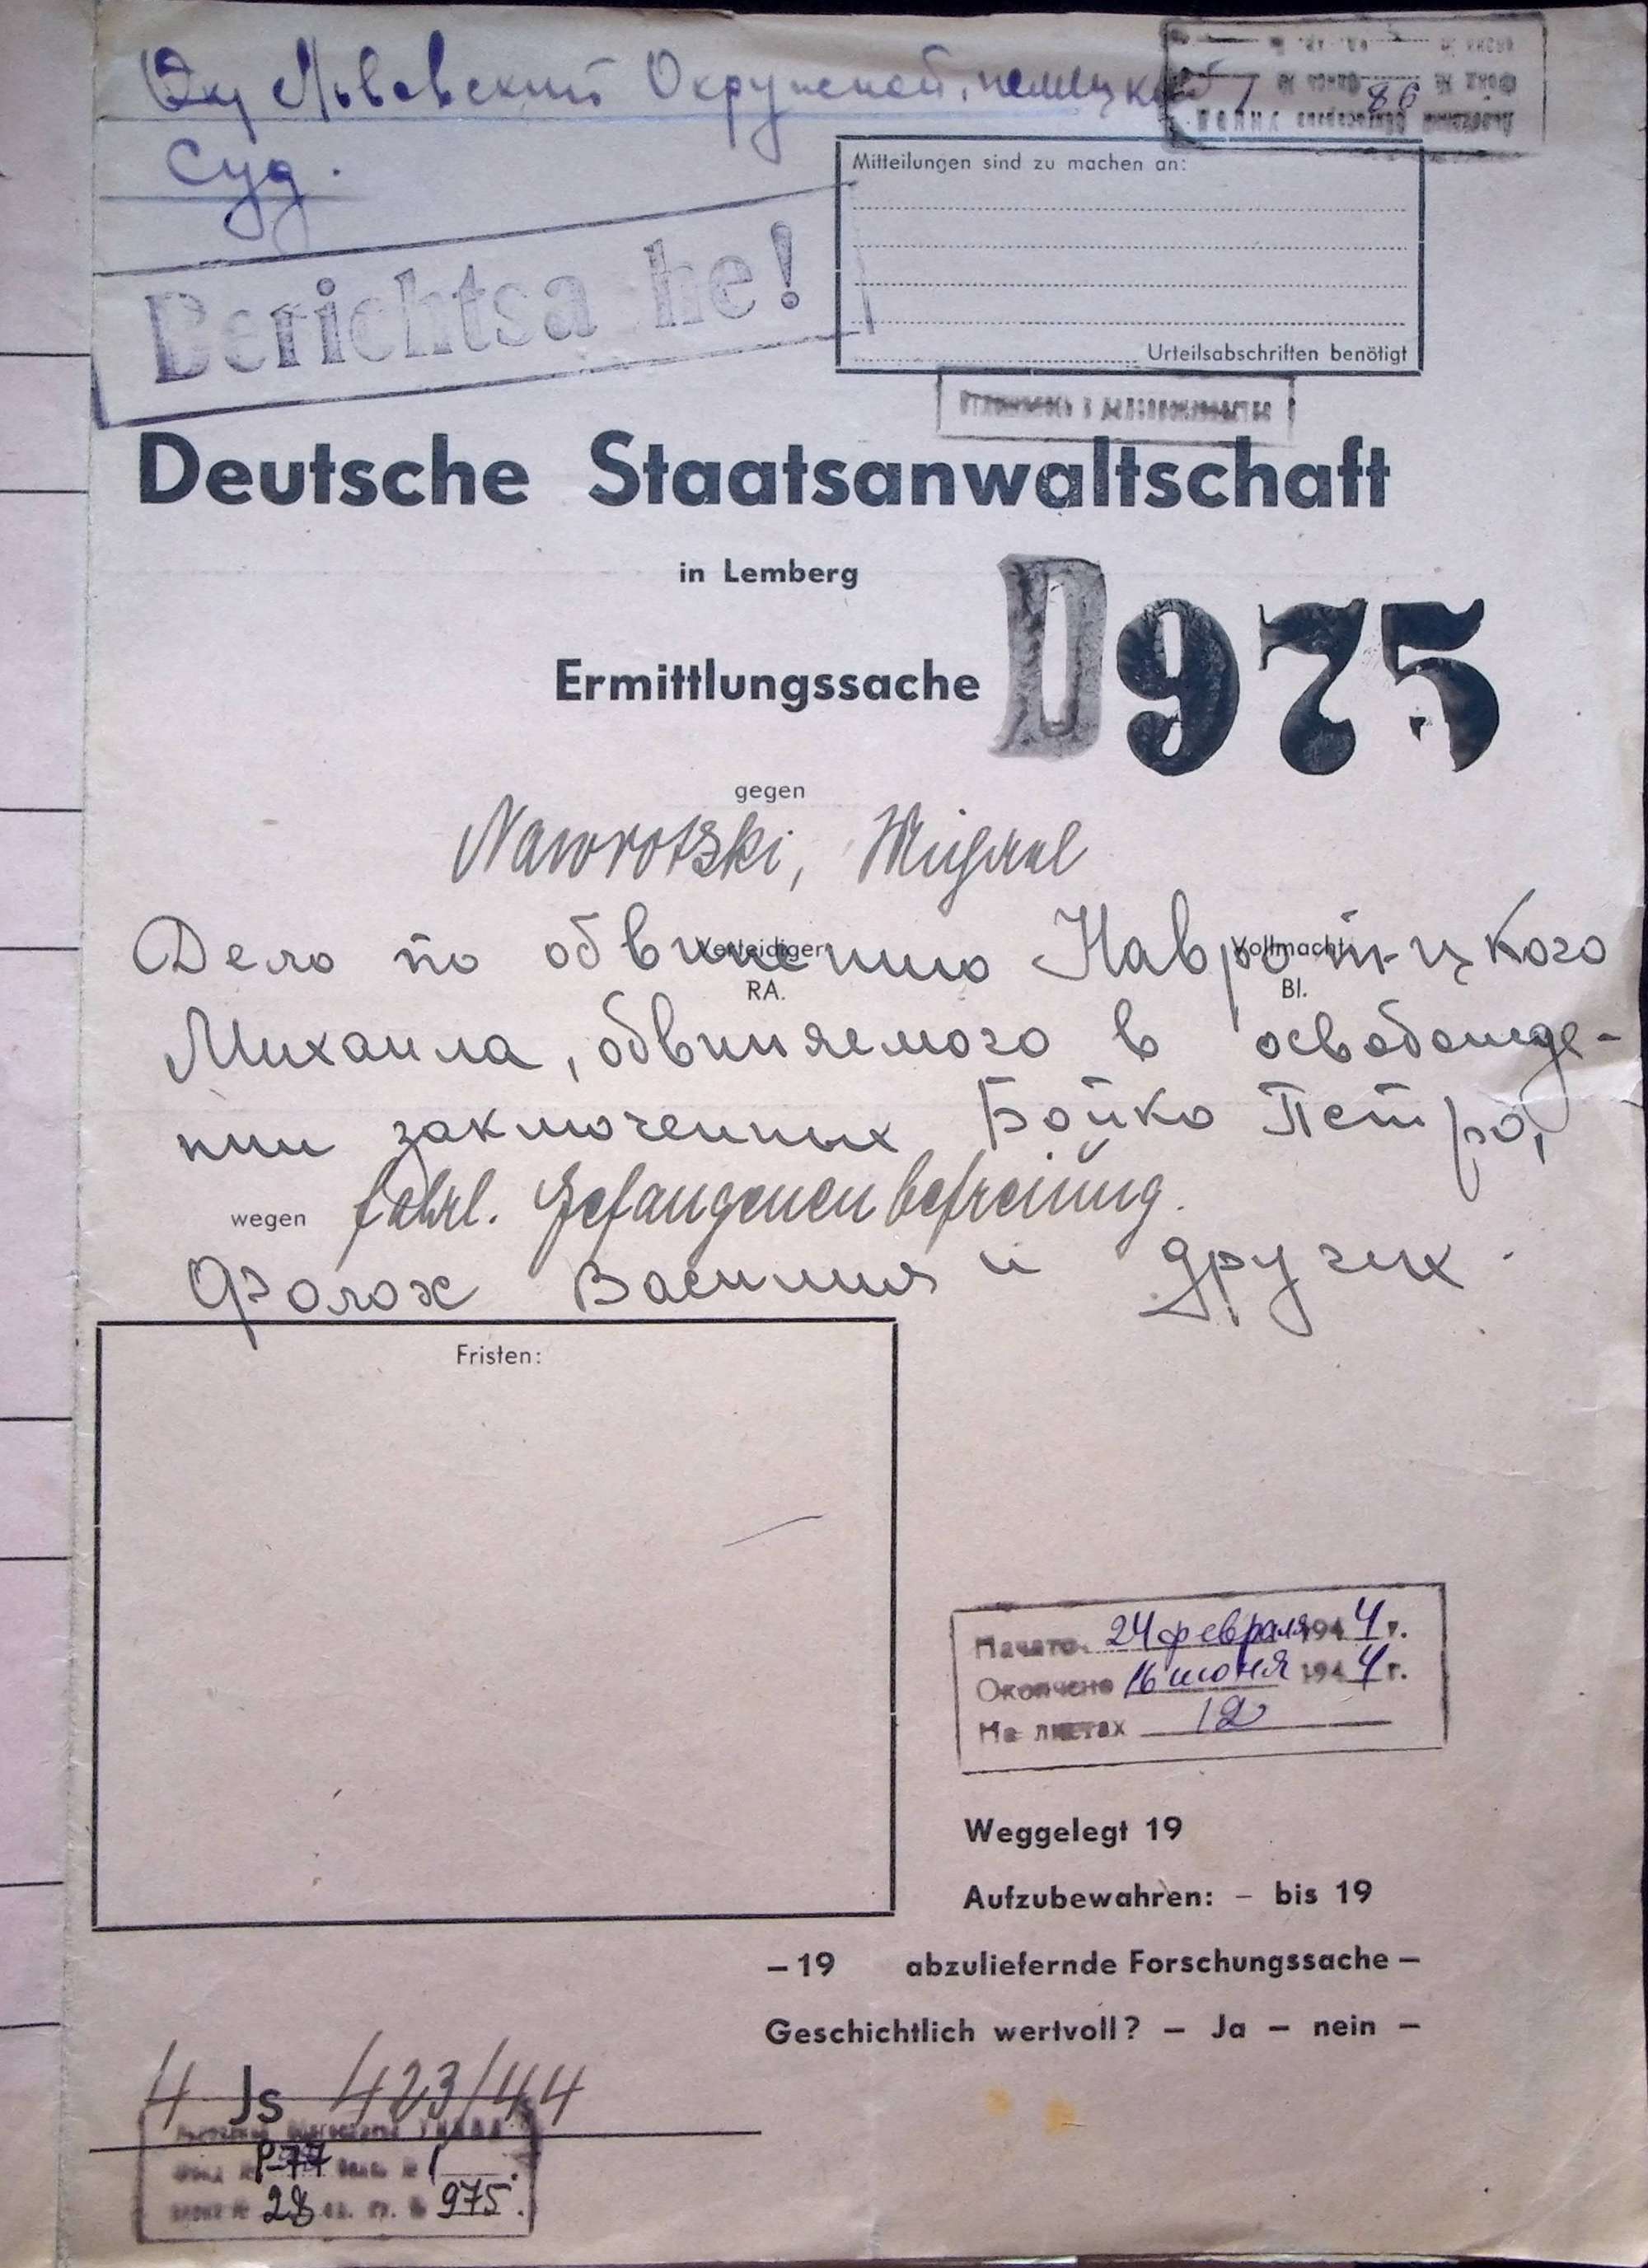 Львовский Окружной немецкий
Суд.
86
Mitteilungen sind zu machen an:
Berichtsa he!
Urteilsabschriften benötigt
Deutsche Staatsanwaltschaft
in Lemberg
Ermittlungssache D975
gegen
Nawrotzki, Michael
Дело по обвинению Навротцкого
Verteidiger Vollmacht
RA. Bl.
Михаила, обвиняемого в освобожде-
нии заключенных Бойко Петро,
wegen fahrl. Gefangenenbefreiung.
Василия и других.
Fristen:
Начато 24 февраля 1944 г.
Окончено 16 июня 1944 г.
На листах 12
Weggelegt 19
Aufzubewahren: – bis 19
– 19 abzuliefernde Forschungssache –
Geschichtlich wertvoll? – Ja – nein –
4 Js 423/44
Р-77 1
28 975.